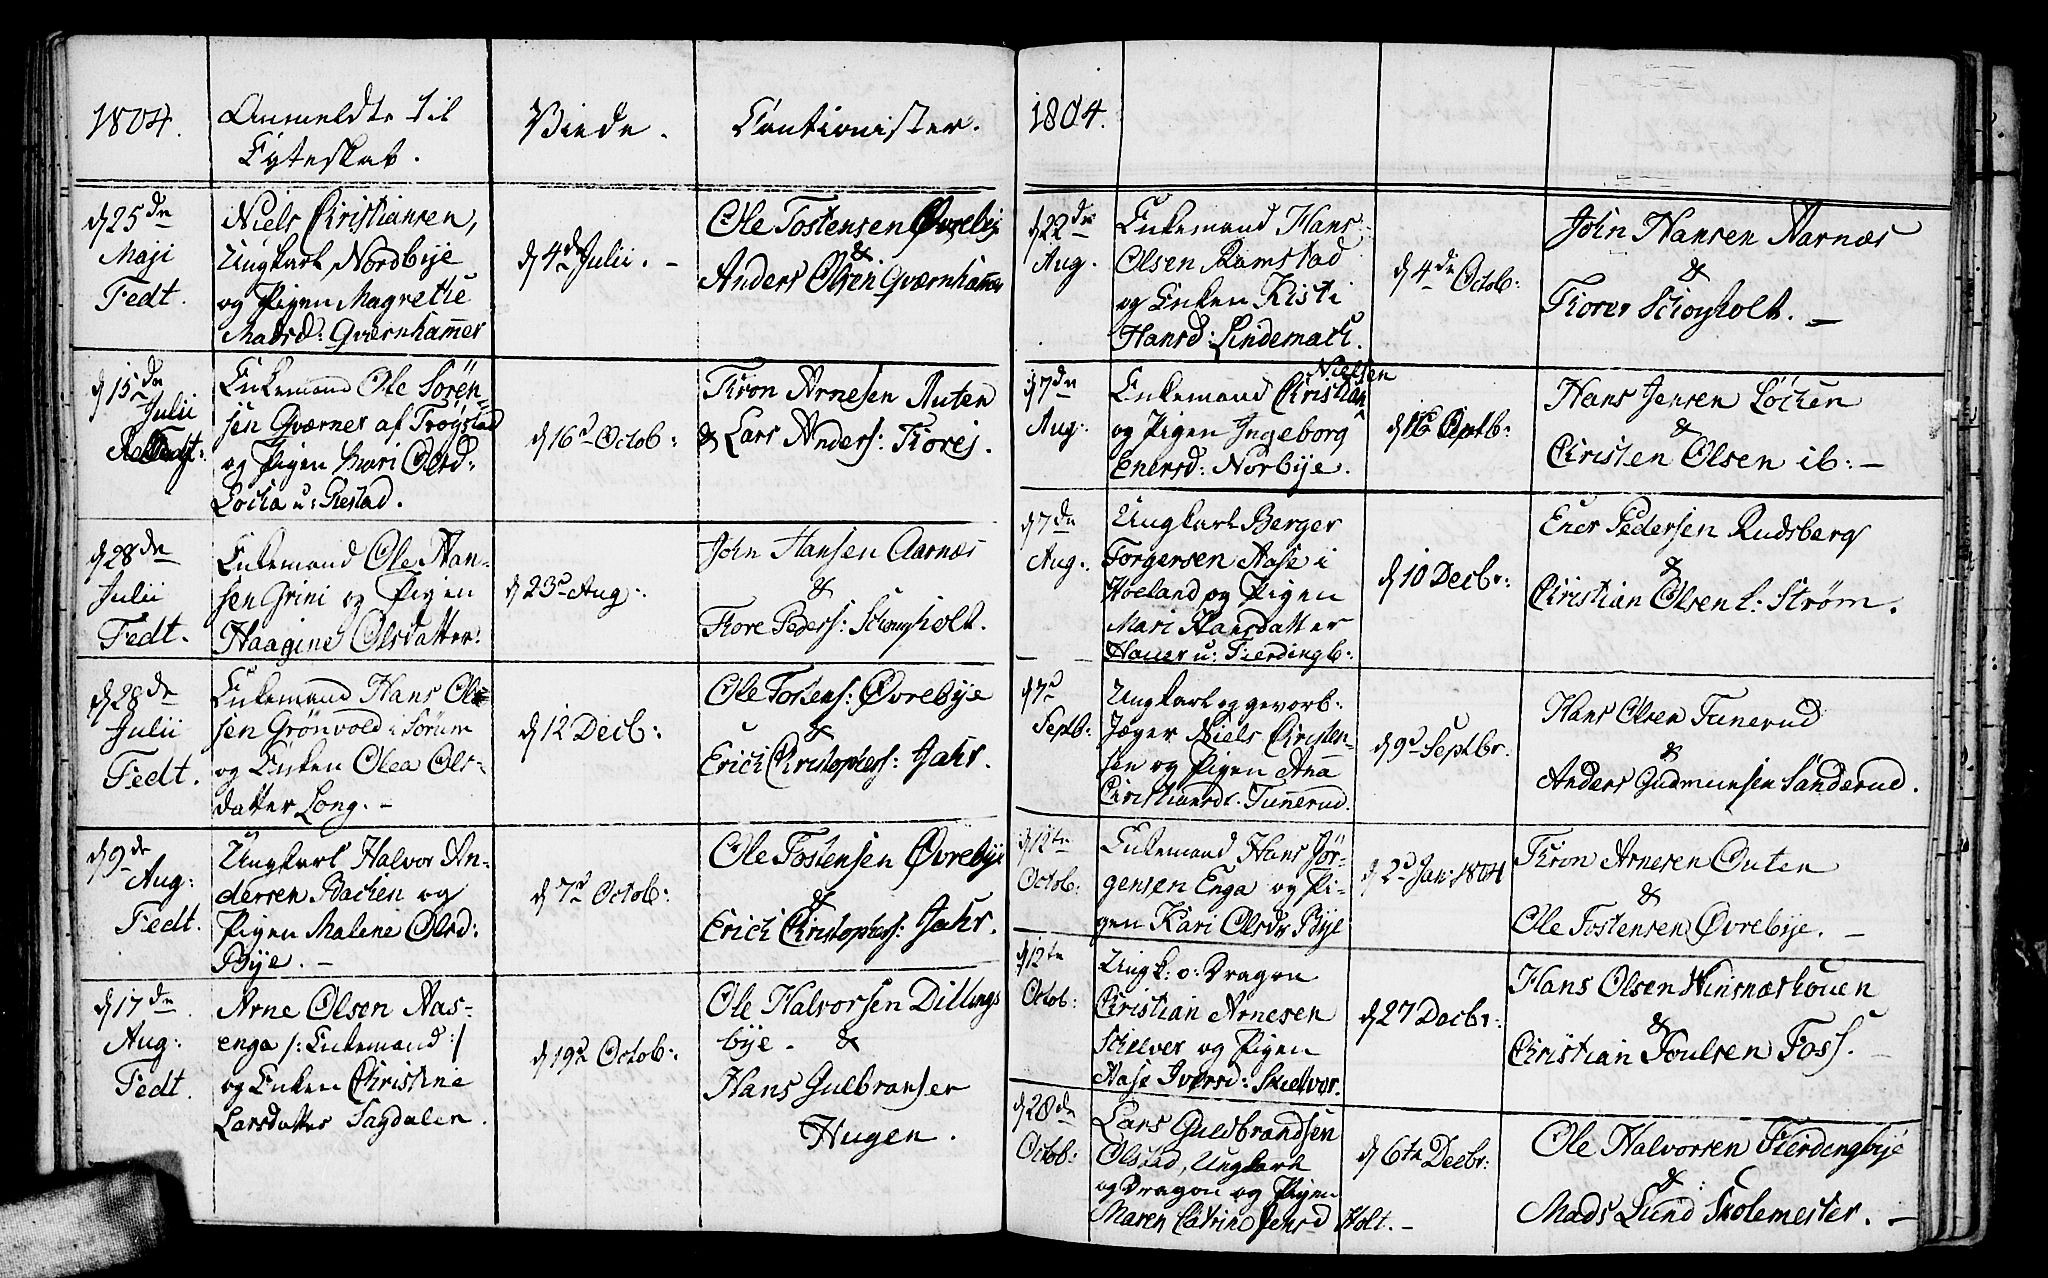 1804.
Anmeldte til
Egteskab.
Viede.
Cautionister.
d 25de
Maji
Fedt.
Niels Christiansen,
Ungkarl Nordbÿe
og Pigen Magrethe
Madsd: Gværnhammer
d 4de Julii. -
Ole Tostensen Øvrebÿe
&
Anders Olsen Gværnhammer
d 15de
Julii
Enkemand Ole Sören-
sen Gværner af Trögstad
og Pigen Mari Olsd:
Locka u: Kiestad.
d 16d Octob:
Tron Arnesen Auten
& Lars Anders: Torej.
d 28de
Julii
Fedt.
Enkemand Ole Han-
sen Grini og Pigen
Haagine Olsdatter.
d 23d Aug:
John Hansen Aarnæs
&
Tore Peders: Schouholt.
d 28de
Julii
Fedt.
Enkemand Hans Ole-
sen Grönvold i Sörum
og Enken Olea Ols-
datter Long. -
d 12 Decb:
Ole Tostens: Øvrebÿe
&
Erich Christophers: Jahr.
d 9de
Aug:
Fedt.
Ungkarl Halvor An-
dersen Backen og
Pigen Malene Olsd:
Bÿe. -
d 7d Octob:
Ole Tostensen Øvrebÿe
&
Erich Christophers: Jahr.
d 17de
Aug:
Fedt.
Arne Olsen Aas-
enga /: Enkemand :/
og Enken Christine
Larsdatter Sagdalen.
d 19d Octob:
Ole Halvorsen Dillings
bÿe - &
Hans Gulbransen
Hugen.
1804.
d 22de
Aug.
Enkemand Hans
Olsen Ramstad
og Enken Kisti
Hansd: Lindemark.
d 4de Octob:
John Hansen Aarnæs
&
Torer Schouholt. -
d 7de
Aug:
Enkemand Christian Nielsen
og Pigen Ingeborg
Enersd: Norbÿe.
Hans Jensen Löcken
&
Christen Olsen ib: -
d 7de
Aug:
Ungkarl Berger
Torgersen Aase i
Hoeland og Pigen
Mari Hansdatter
Haner u: Fierdingb:
d 10 Decbr:
Ener Pedersen Rudsberg
&
Christian Olsen l: Strøm.
d 7d
Septb:
Ungkarl og gevorb:
Jæger Niels Christen-
sen og Pigen Ana
Christiansd. Tunnerud.
d 9d Septbr.
Hans Olsen Tunerud
&
Anders Gudmunsen Sanderud.
d 12te
Octob:
Enkemand Hans Jör-
gensen Enga og Pi-
gen Kari Olsdr Bÿe
d 2d Jan: 1804
Tron Arnesen Outen
&
Ole Tostensen Øvrebÿe. -
d 12te
Octob:
Ungk: o: Dragon
Christian Arnesen
Schelver og Pigen
Aase Iversd: Skielver.
d 27 Decbr:
Hans Olsen Winsnæskouen
&
Christian Poulsen Foss. -
d 28de
Octob:
Lars Guldbrandsen
Olstad, Ungkarl
og Dragon og Pigen
Maren Catrine Jensd Holt. -
d 6te Decbr:
Ole Halvorsen Fierdingbÿe
&
Mads Lund Skolemester. -